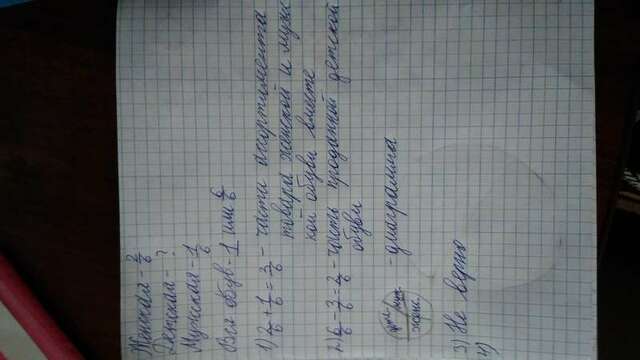 Женская - 2/6
Детская - ?
Мужская - 1/6
Вся обув - 1 или 6/6
1) 2/6 + 1/6 = 3/6 - части асортимента
товара женской и мужс
кой обуви вместе
2) 6/6 - 3/6 = 2/6 - часть проданной детской
обуви
детс. муж. - диаграмма
женс.
3) Не верно
4)